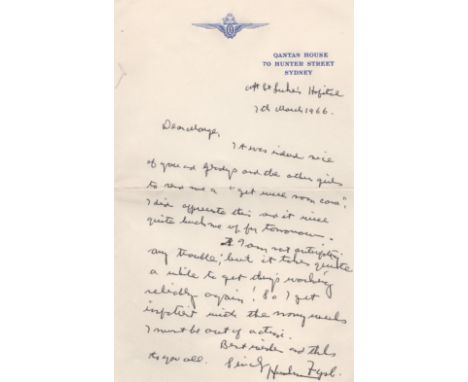 QANTAS HOUSE
70 HUNTER STREET
SYDNEY
St Luke's Hospital
7th March 1966.
Dear Marge,
It was indeed nice
of you and Gladys and the other girls
to send me a "get well soon card".
I did appreciate this and it will
quite buck me up for tomorrow.
I am not anticipating
any trouble, but it takes quite
a while to get things working
reliably again! So I get
impatient with the many weeks
I must be out of action.
Best wishes and thks
to you all. Sincly Hudson Fysh.